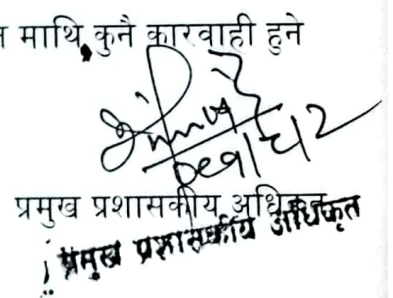 माथि कुनै कारवाही हुने
प्रमुख प्रशासकीय अधिकृत
प्रमुख प्रशासकीय अधिकृत